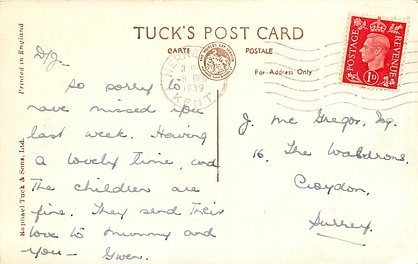 TUCK'S POST CARD
CARTE POSTALE
For Address Only
Printed in England
Raphael Tuck & Sons, Ltd.
POSTAGE REVENUE
1D
HERNE
9 DE
1939
KENT
D/J—
So sorry to
have missed you
last week. Having
a lovely time, and
the children are
fine. They send their
love to mummy and
you— Gwen.
J. Mc Gregor, Esq.
16, The Waldrons,
Croydon,
Surrey.